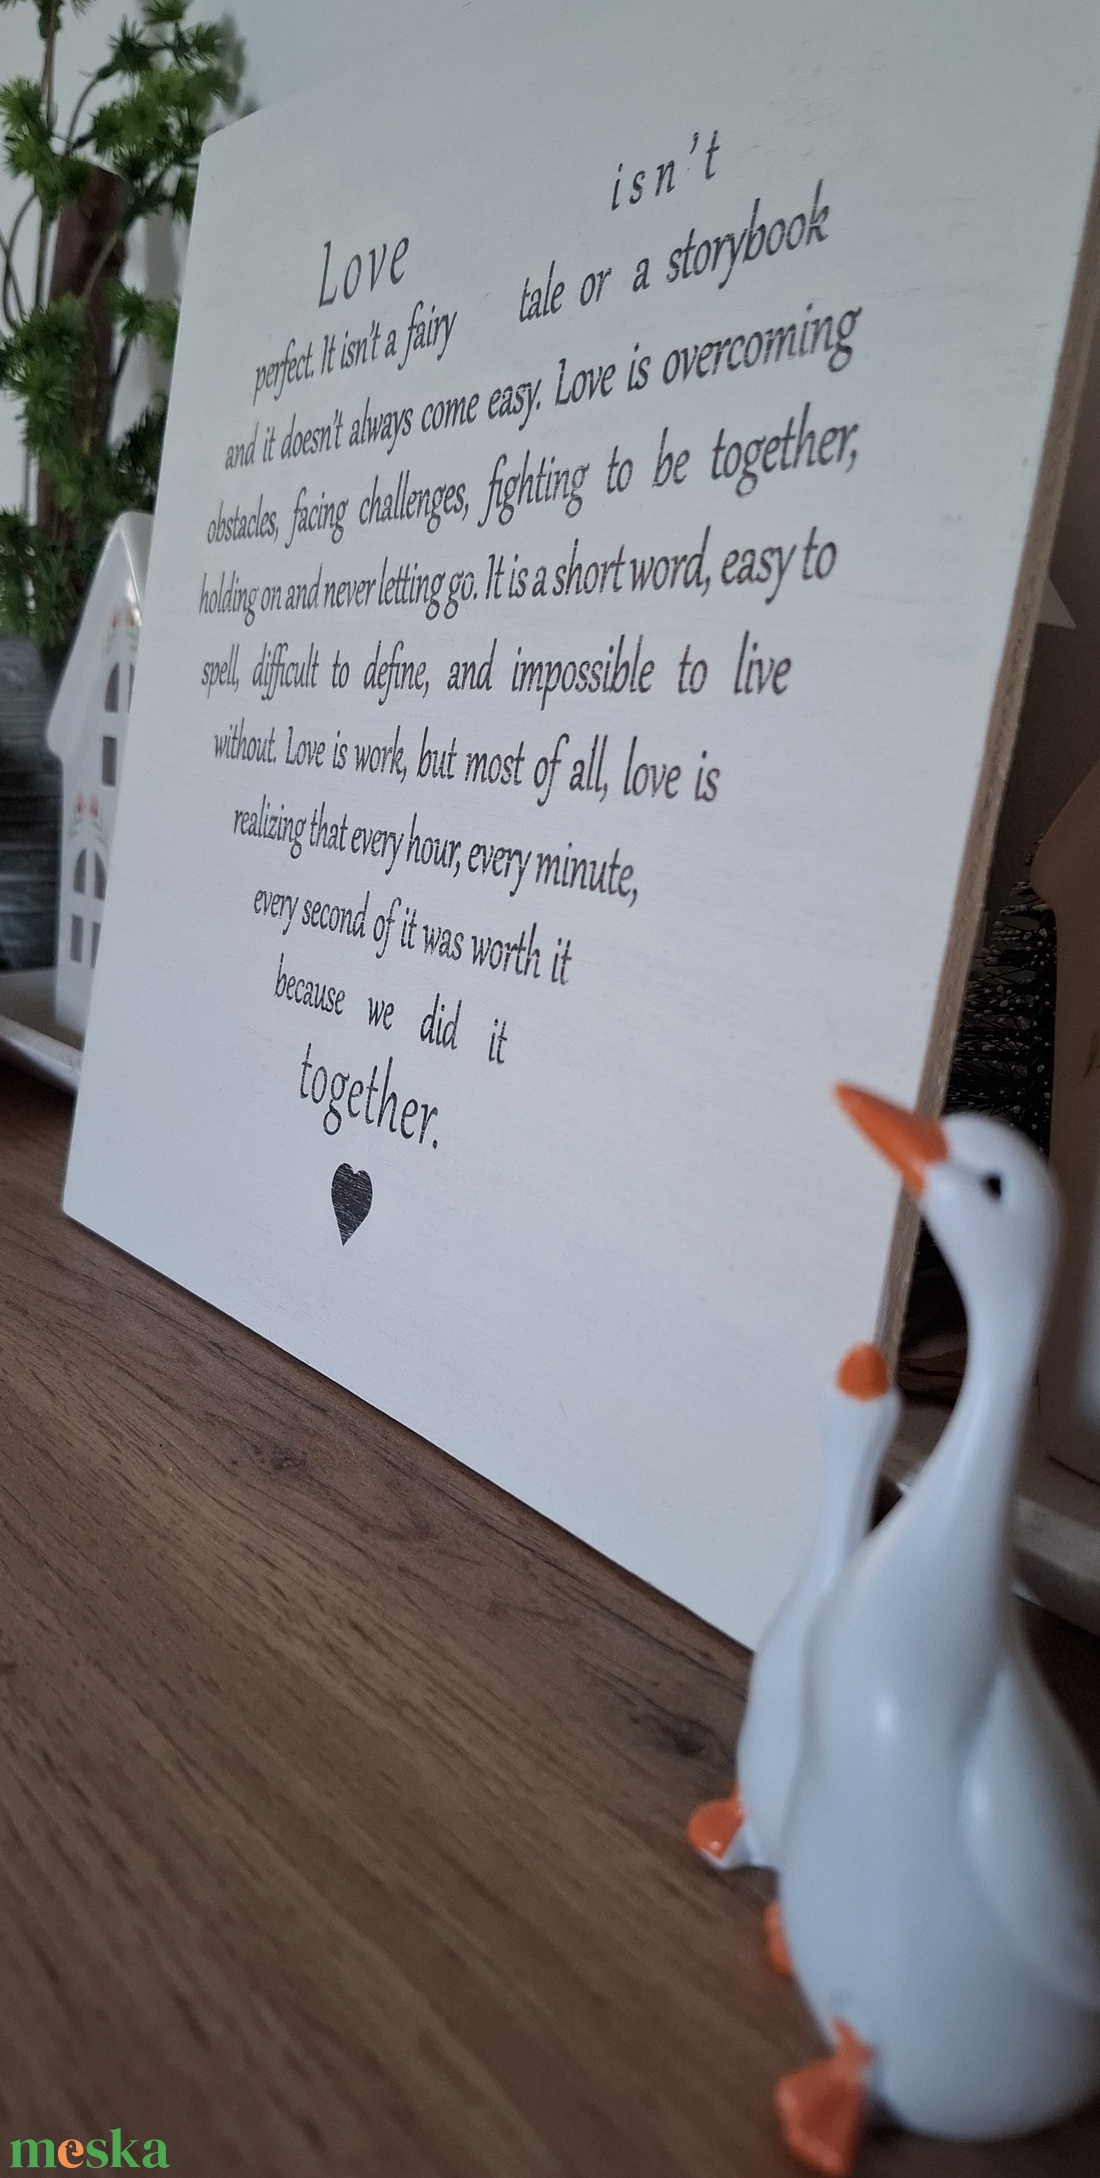 Love isn't
perfect. It isn't a fairy tale or a storybook
and it doesn't always come easy. Love is overcoming
obstacles, facing challenges, fighting to be together,
holding on and never letting go. It is a short word, easy to
spell, difficult to define, and impossible to live
without. Love is work, but most of all, love is
realizing that every hour, every minute,
every second of it was worth it
because we did it
together.
meska